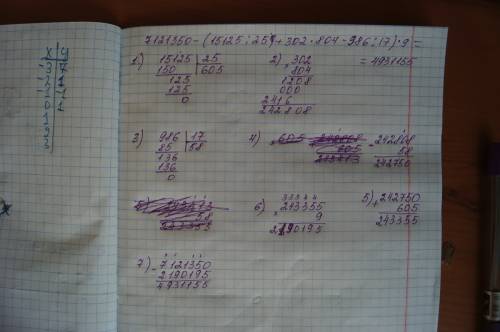 7121350-(15125:25+302·804-986:17)·9=
=4931155
1) 15125 | 25
150 | 605
125
125
0
2) × 302
804
1208
000
2416
242808
3) 986 | 17
85 | 58
136
136
0
4)
- 242808
58
242750
6) × 243355
9
2190195
5) + 242750
605
243355
7) - 7121350
2190195
4931155